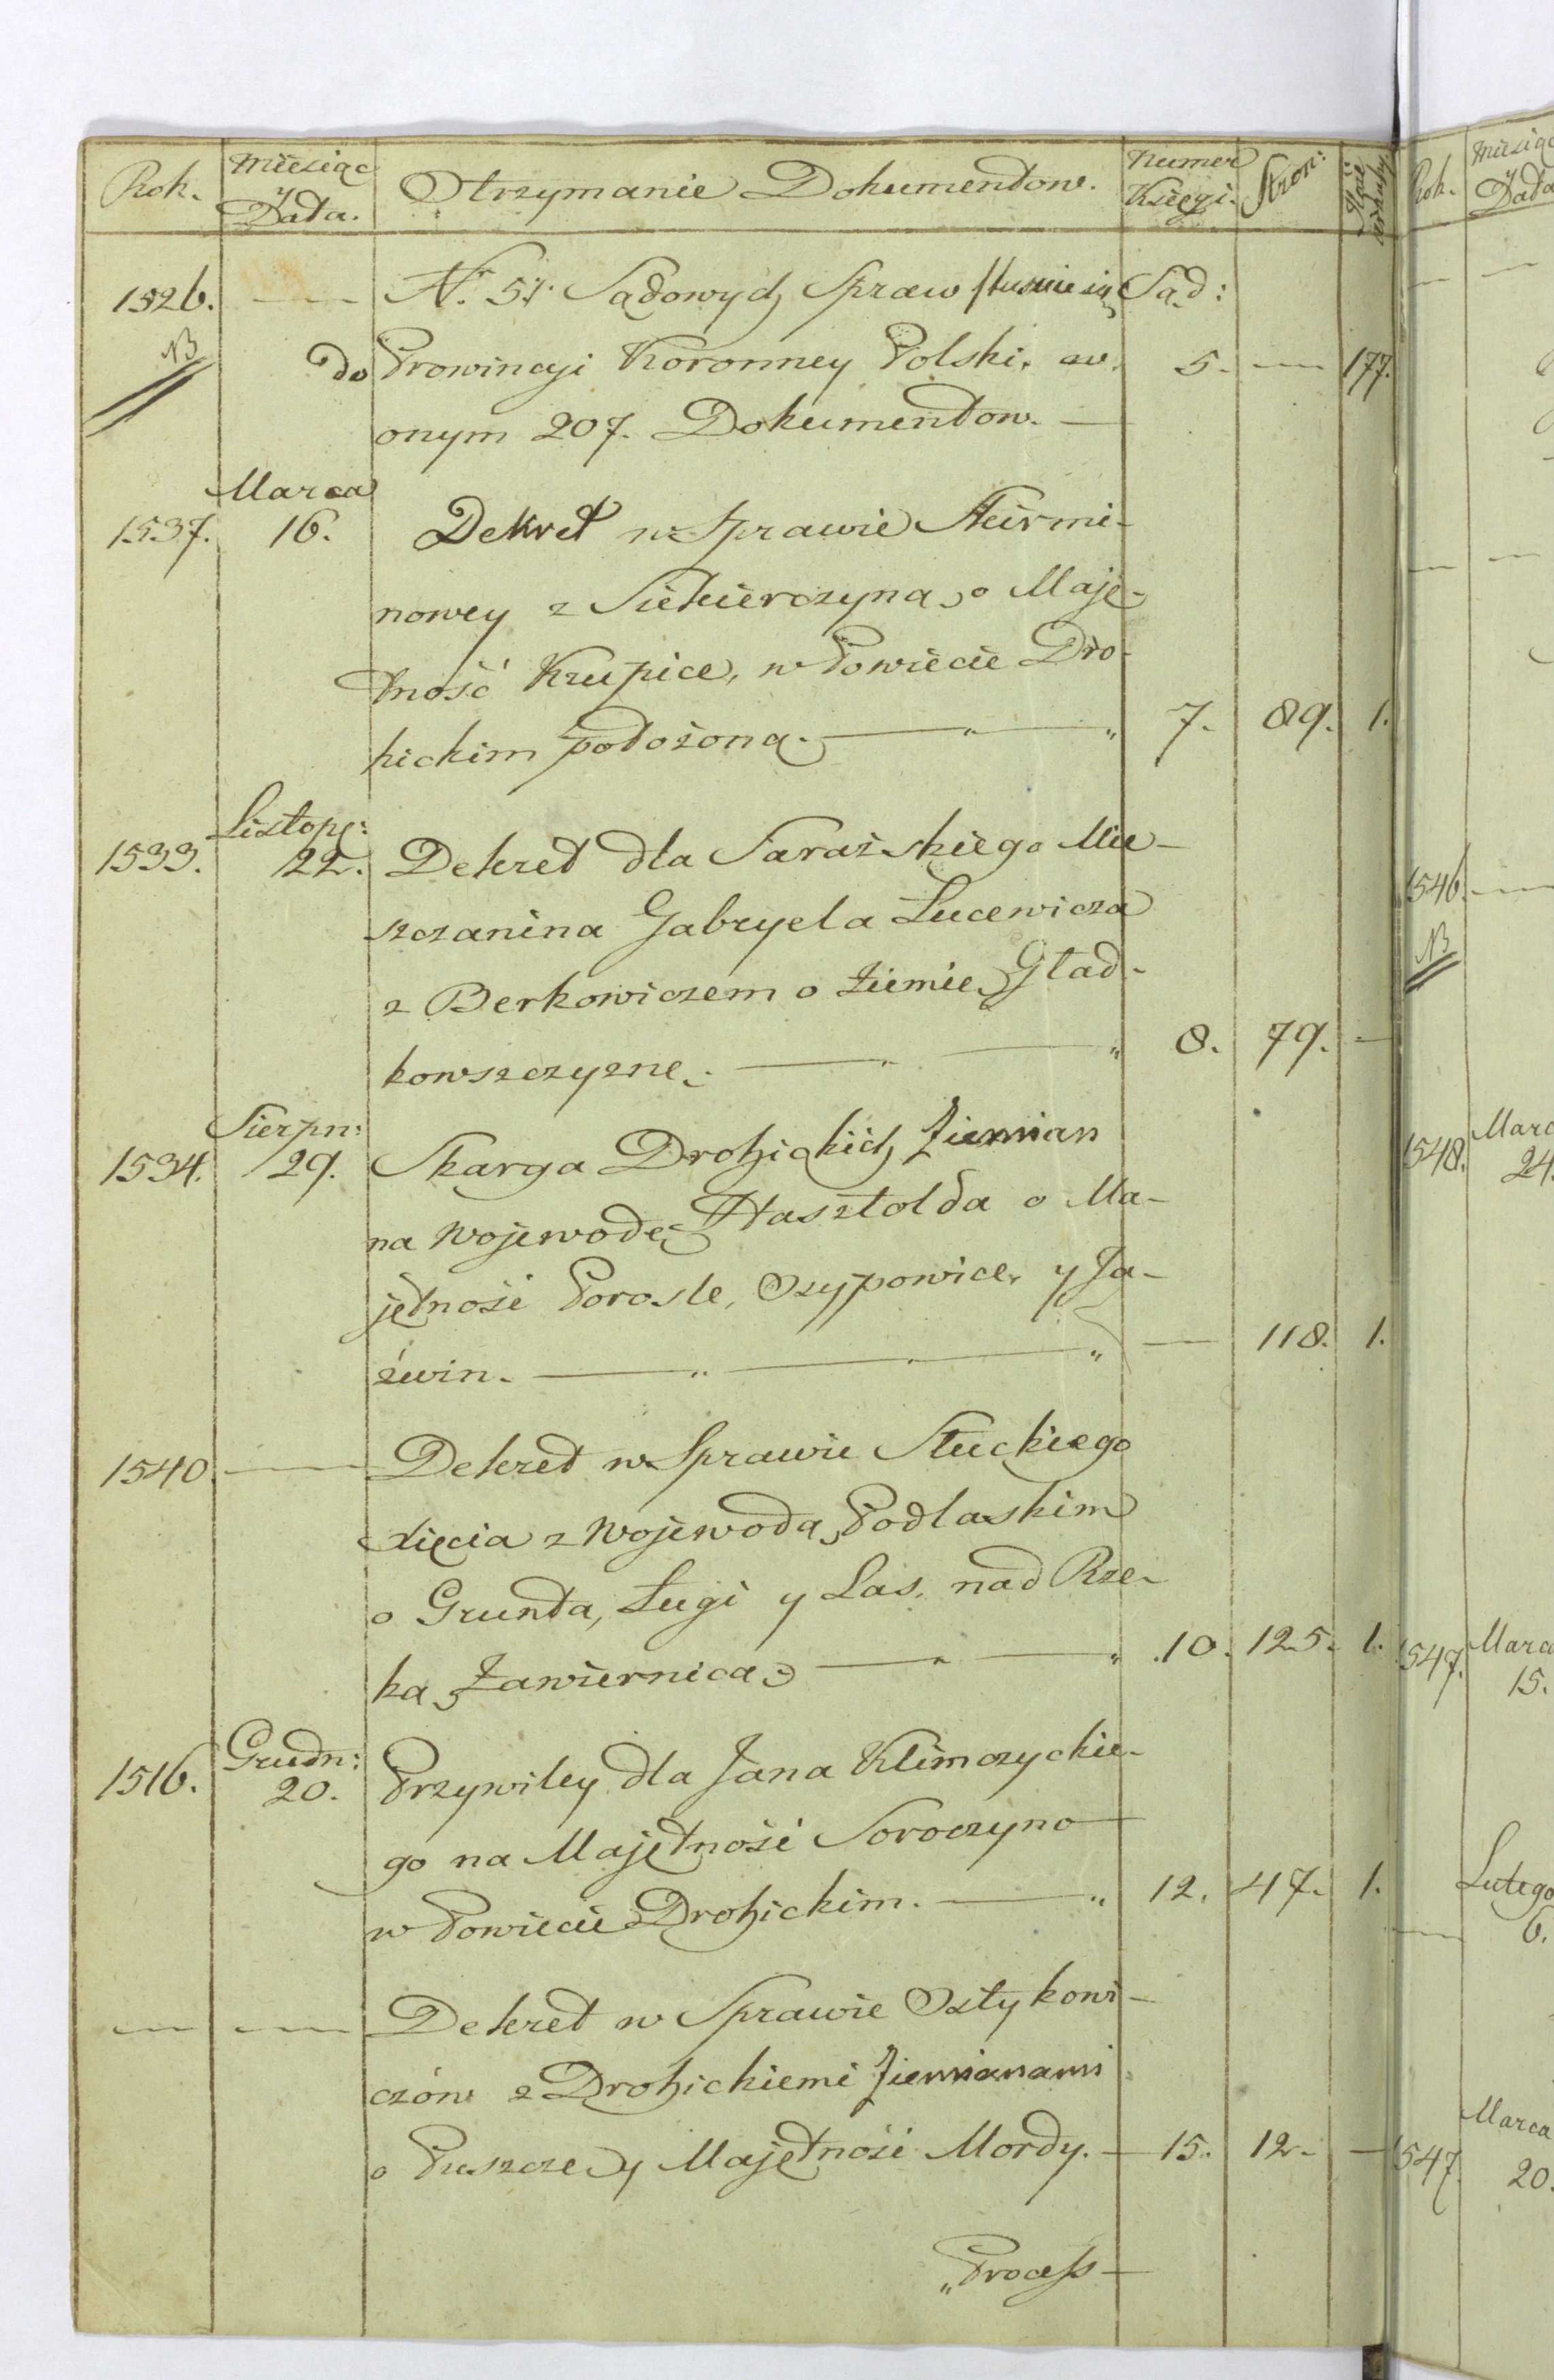 Rok. Miesiąc y Data. Otrzymanie Dokumentow. Numer Księgi. Stron:
1526. — N. 51. Sądowych Spraw Sąd:
NB do Prowincyi Koronney Polski. w. 5. — 177.
onym 207. Dokumentow. —
Marca
1537. 16. Dekret w Sprawie Sturmi-
nowey z Siekierczyna, o Maję-
tność Krupice, w Powiecie Dro-
hickim położoną. — 7. 89. 1.
Listop:
1533. 22. Dekret dla Saraźskiego Mie-
szczanina Gabryela Lucewicza
z Berkowiczem o Ziemię Gład-
kowszczyznę. — 8. 79. —
Sierpn:
1534. 29. Skarga Drohickich Ziemian
na Wojewodę Hasztolda o Ma-
jętność Porosle, Osypowice, y Ja-
źwin. — — 118. 1.
1540. — Dekret w Sprawie Słuckiego
Xięcia z Wojewodą Podlaskim
o Grunta, Ługi y Las, nad Rze-
ką Zawiernicą — 10. 125. 1.
Grudn:
1516. 20. Przywiley dla Jana Klimczyckie-
go na Majętność Soroczyno
w Powiecie Drohickim. — 12. 47. 1.
— — Dekret w Sprawie Ostykowi-
czów z Drohickiemi Ziemianami
o Puszczę y Majętność Mordy. — 15. 12. —
„Process —
Rok. Miesiąc y Data
1546. —
NB
1548. Marc 24.
1547. Marca 15.
— Lutego 6.
1547. Marca 20.